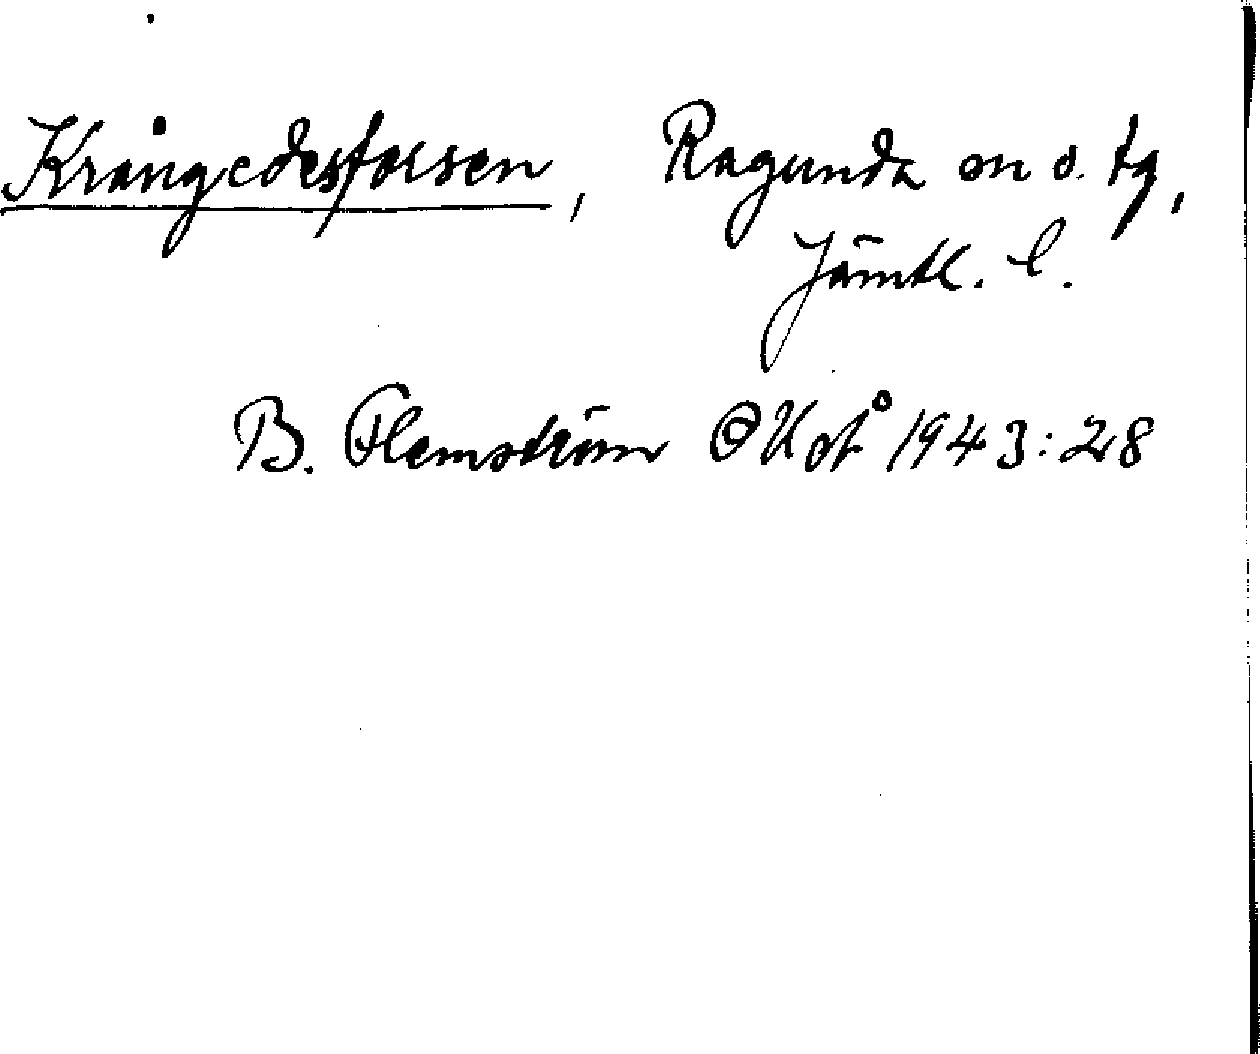 Krångedesforsen, Ragunda sn o. tg,
Jämtl. l.
B. Flemström OUoÅ 1943:28